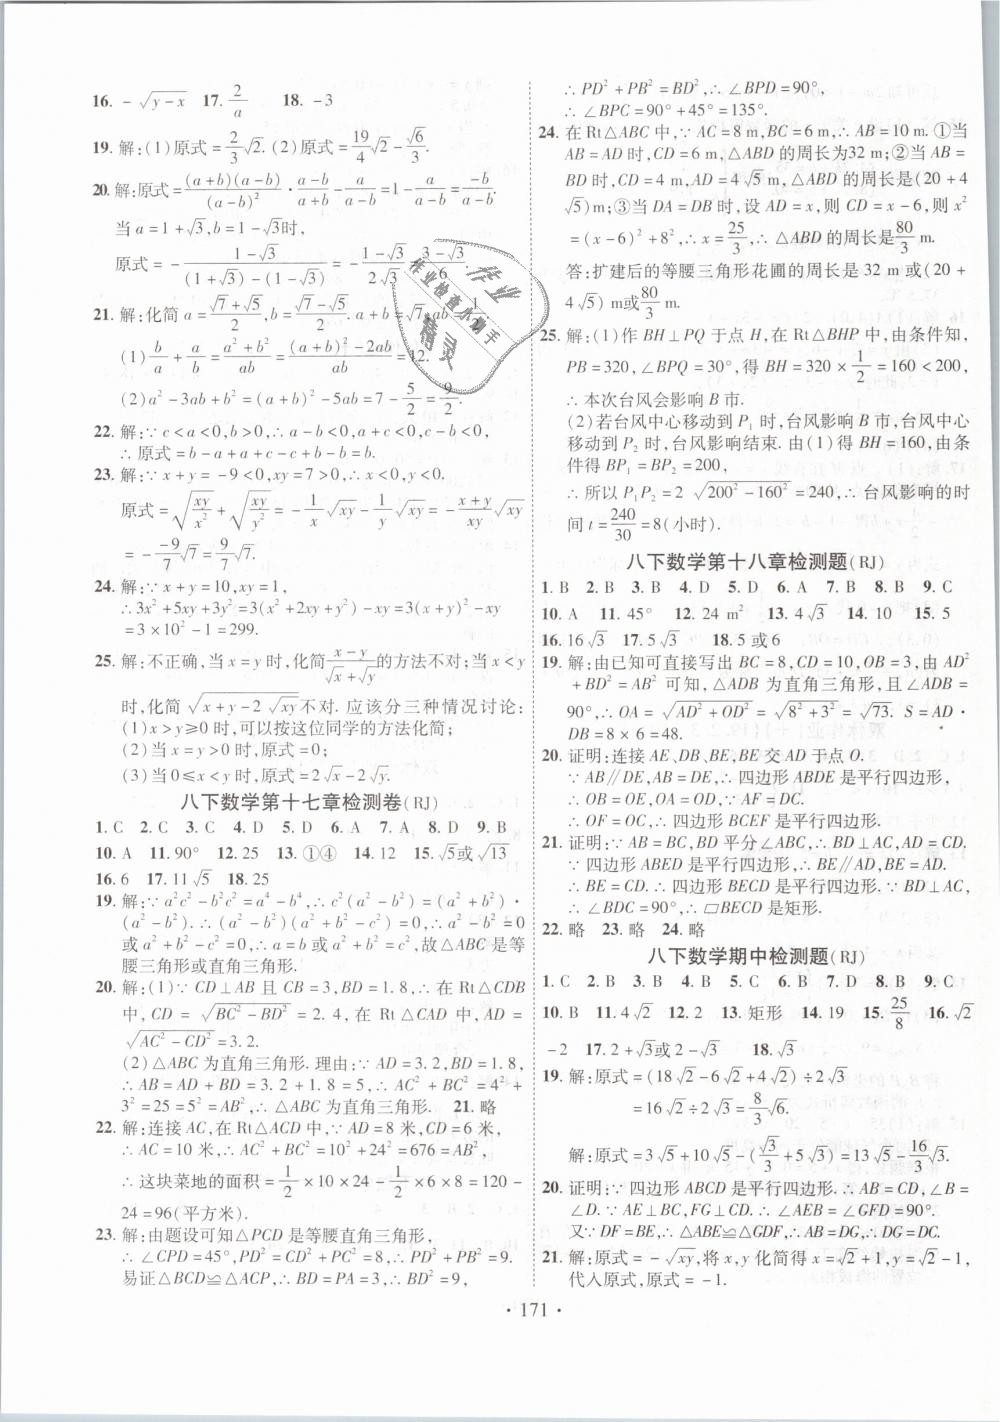 16. -√(y-x)  17. 2/a  18. -3
19. 解:(1)原式=2/3√2. (2)原式=19/4√2-√6/3.
20. 解:原式=(a+b)(a-b)/(a-b)²·(a-b)/(a+b)-a/(a-b)=1-a/(a-b)=-b/(a-b).
当 a=1+√3,b=1-√3时,
原式=-(1-√3)/((1+√3)-(1-√3))=-(1-√3)/(2√3)=(3-√3)/6.
21. 解:化简 a=(√7+√5)/2,b=(√7-√5)/2. a+b=√7,ab=1/2.
(1) b/a+a/b=(a²+b²)/ab=((a+b)²-2ab)/ab=12.
(2)a²-3ab+b²=(a+b)²-5ab=7-5/2=9/2.
22. 解:∵c<a<0,b>0,∴a-b<0,a+c<0,
∴原式=b-a+a+c-b-c+b=b.
23. 解:∵x+y=-9<0,xy=7>0,∴x<0,y<0.
原式=√(xy/x²)+√(xy/y²)=-1/x√xy-1/y√xy=-(x+y)/xy√xy
=-(-9)/7√7=9/7√7.
24. 解:∵x+y=10,xy=1,
∴3x²+5xy+3y²=3(x²+2xy+y²)-xy=3(x+y)²-xy
=3×10²-1=299.
25. 解:不正确,当 x=y 时,化简(x-y)/(√x+√y)的方法不对;当 x<y
时,化简√(x+y-2√xy)不对. 应该分三种情况讨论:
(1)x>y≥0 时,可以按这位同学的方法化简;
(2)当 x=y>0 时,原式=0;
(3)当 0≤x<y 时,原式=2√x-2√y.
八下数学第十七章检测卷(RJ)
1. C  2. C  3. C  4. D  5. D  6. C  7. A  8. D  9. B
10. A  11. 90°  12. 25  13. ①④  14. 12  15. √5或√13
16. 6  17. 11√5  18. 25
19. 解:∵a²c²-b²c²=a⁴-b⁴,∴c²(a²-b²)=(a²+b²)·
(a²-b²). ∴(a²-b²)(a²+b²-c²)=0,∴a²-b²=0
或 a²+b²-c²=0,∴a=b 或 a²+b²=c²,故△ABC 是等
腰三角形或直角三角形.
20. 解:(1)∵CD⊥AB 且 CB=3,BD=1.8,∴在 Rt△CDB
中,CD=√(BC²-BD²)=2.4,在 Rt△CAD 中,AD=
√(AC²-CD²)=3.2.
(2)△ABC 为直角三角形. 理由:∵AD=3.2,BD=1.8,
∴AB=AD+BD=3.2+1.8=5,∴AC²+BC²=4²+
3²=25=5²=AB²,∴△ABC 为直角三角形.  21. 略
22. 解:连接 AC,在 Rt△ACD 中,∵AD=8 米,CD=6 米,
∴AC=10 米,∵AC²+BC²=10²+24²=676=AB²,
∴这块菜地的面积=1/2×10×24-1/2×6×8=120-
24=96(平方米).
23. 解:由题设可知△PCD 是等腰直角三角形,
∴∠CPD=45°,PD²=CD²+PC²=8,∴PD²+PB²=9.
易证△BCD≌△ACP,∴BD=PA=3,∴BD²=9,
∴PD²+PB²=BD²,∴∠BPD=90°,
∴∠BPC=90°+45°=135°.
24. 在 Rt△ABC 中,∵AC=8 m,BC=6 m,∴AB=10 m. ①当
AB=AD 时,CD=6 m,△ABD 的周长为32 m;②当 AB=
BD 时,CD=4 m,AD=4√5 m,△ABD 的周长是(20+4
√5)m;③当 DA=DB 时,设 AD=x,则 CD=x-6,则 x²
=(x-6)²+8²,∴x=25/3,∴△ABD 的周长是80/3 m.
答:扩建后的等腰三角形花圃的周长是 32 m 或(20+
4√5) m或80/3 m.
25. 解:(1)作 BH⊥PQ 于点 H,在 Rt△BHP 中,由条件知,
PB=320,∠BPQ=30°,得 BH=320×1/2=160<200,
∴本次台风会影响 B 市.
(2)若台风中心移动到 P₁ 时,台风影响 B 市,台风中心
移动到 P₂ 时,台风影响结束. 由(1)得 BH=160,由条
件得 BP₁=BP₂=200,
∴所以 P₁P₂=2√(200²-160²)=240,∴台风影响的时
间 t=240/30=8(小时).
八下数学第十八章检测题(RJ)
1. B  2. B  3. B  4. D  5. D  6. A  7. B  8. B  9. C
10. A  11. 45°  12. 24 m²  13. 4√3  14. 10  15. 5
16. 16√3  17. 5√3  18. 5 或 6
19. 解:由已知可直接写出 BC=8,CD=10,OB=3,由 AD²
+BD²=AB² 可知,△ADB 为直角三角形,且∠ADB=
90°,∴OA=√(AD²+OD²)=√(8²+3²)=√73. S=AD·
DB=8×6=48.
20. 证明:连接 AE、DB、BE,BE 交 AD 于点 O.
∵AB∥DE,AB=DE,∴四边形 ABDE 是平行四边形,
∴OB=OE,OA=OD,∵AF=DC.
∴OF=OC,∴四边形 BCEF 是平行四边形.
21. 证明:∵AB=BC,BD 平分∠ABC,∴BD⊥AC,AD=CD.
∵四边形 ABED 是平行四边形,∴BE∥AD,BE=AD.
∴BE=CD. ∴四边形 BECD 是平行四边形. ∵BD⊥AC,
∴∠BDC=90°,∴▱BECD 是矩形.
22. 略  23. 略  24. 略
八下数学期中检测题(RJ)
1. C  2. B  3. B  4. B  5. C  6. B  7. D  8. B  9. C
10. B  11. 4√2  12. 2  13. 矩形  14. 19  15. 25/8  16. √2
-2  17. 2+√3或2-√3  18. √3
19. 解:原式=(18√2-6√2+4√2)÷2√3
=16√2÷2√3=8/3√6.
解:原式=3√5+10√5-(√3/3+5√3)=13√5-16/3√3.
20. 证明:∵四边形 ABCD 是平行四边形. ∴AB=CD,∠B=
∠D. ∵AE⊥BC,FG⊥CD. ∴∠AEB=∠GFD=90°.
又∵DF=BE,∴△ABE≌△GDF,∴AB=DG,∴DG=DC.
21. 解:原式=-√xy,将 x,y 化简得 x=√2+1,y=√2-1,
代入原式,原式=-1.
· 171 ·
作业
作业检查小帮手
精灵